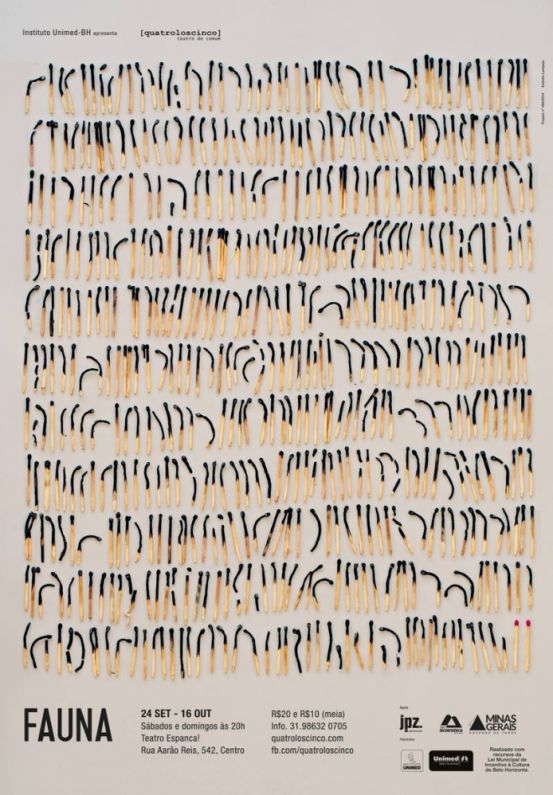 Instituto Unimed-BH apresenta
[quatroloscinco]
teatro do comum
FAUNA
24 SET - 16 OUT
Sábados e domingos às 20h
Teatro Espanca!
Rua Aarão Reis, 542, Centro
R$20 e R$10 (meia)
Info. 31.98632 0705
quatroloscinco.com
fb.com/quatroloscinco
Apoio
jpz.
MINAS
GERAIS
GOVERNO DE TODOS
Patrocínio
UNIMED
Unimed
Realizado com
recursos da
Lei Municipal de
Incentivo à Cultura
de Belo Horizonte.